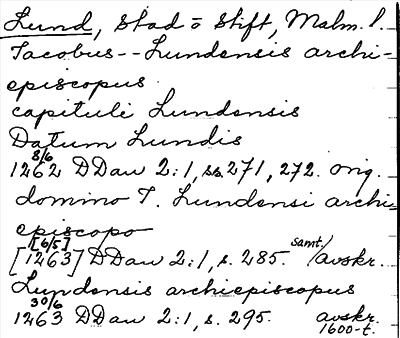 Lund, Stad o Stift, Malm. l.
Jacobus -- Lundensis archi-
episcopus
capituli Lundensis
Datum Lundis
8/6
1262 DDan 2:1, ss. 271, 272. orig.
domino J. Lundensi archi-
episcopo
[6/5] samt.
[1263] DDan 2:1, s. 285. /avskr.
Lundensis archiepiscopus
30/6
1263 DDan 2:1, s. 295. avskr.
1600-t.